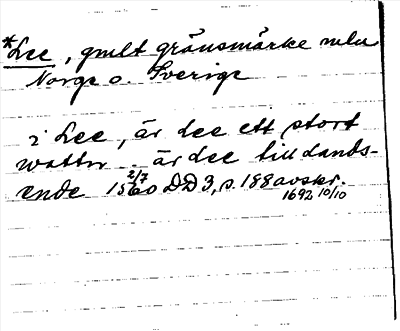 *Lee, gmlt gränsmärke mln
Norge o. Sverige
i Lee, är lee ett stort
watter .. är dee till lands-
ende 15 2/7 60 DD 3, s. 188 avskr.
1692 10/10